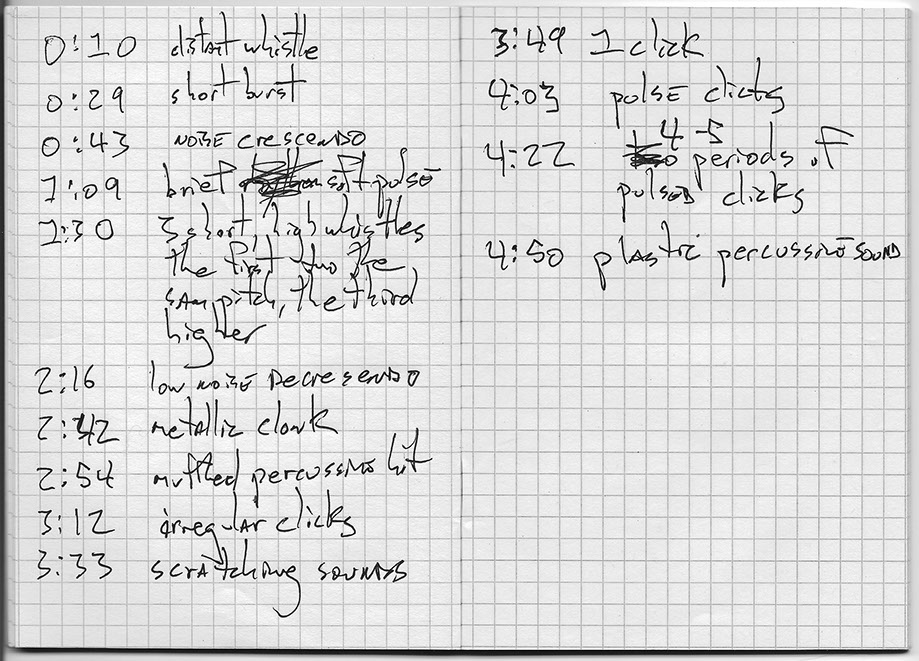 0:10 distant whistle
0:29 short burst
0:43 NOISE crescendo
1:09 brief soft pulse
1:30 3 short, high whistles
the first two the
sam pitch, the third
higher
2:16 low NOISE Decresendo
2:42 metallic clonk
2:54 muffled percussive hit
3:12 irregular clicks
3:33 scratching sounds
3:49 1 click
4:03 pulse clicks
4-5
4:22 periods of
pulsed clicks
4:50 plastic percussive sound